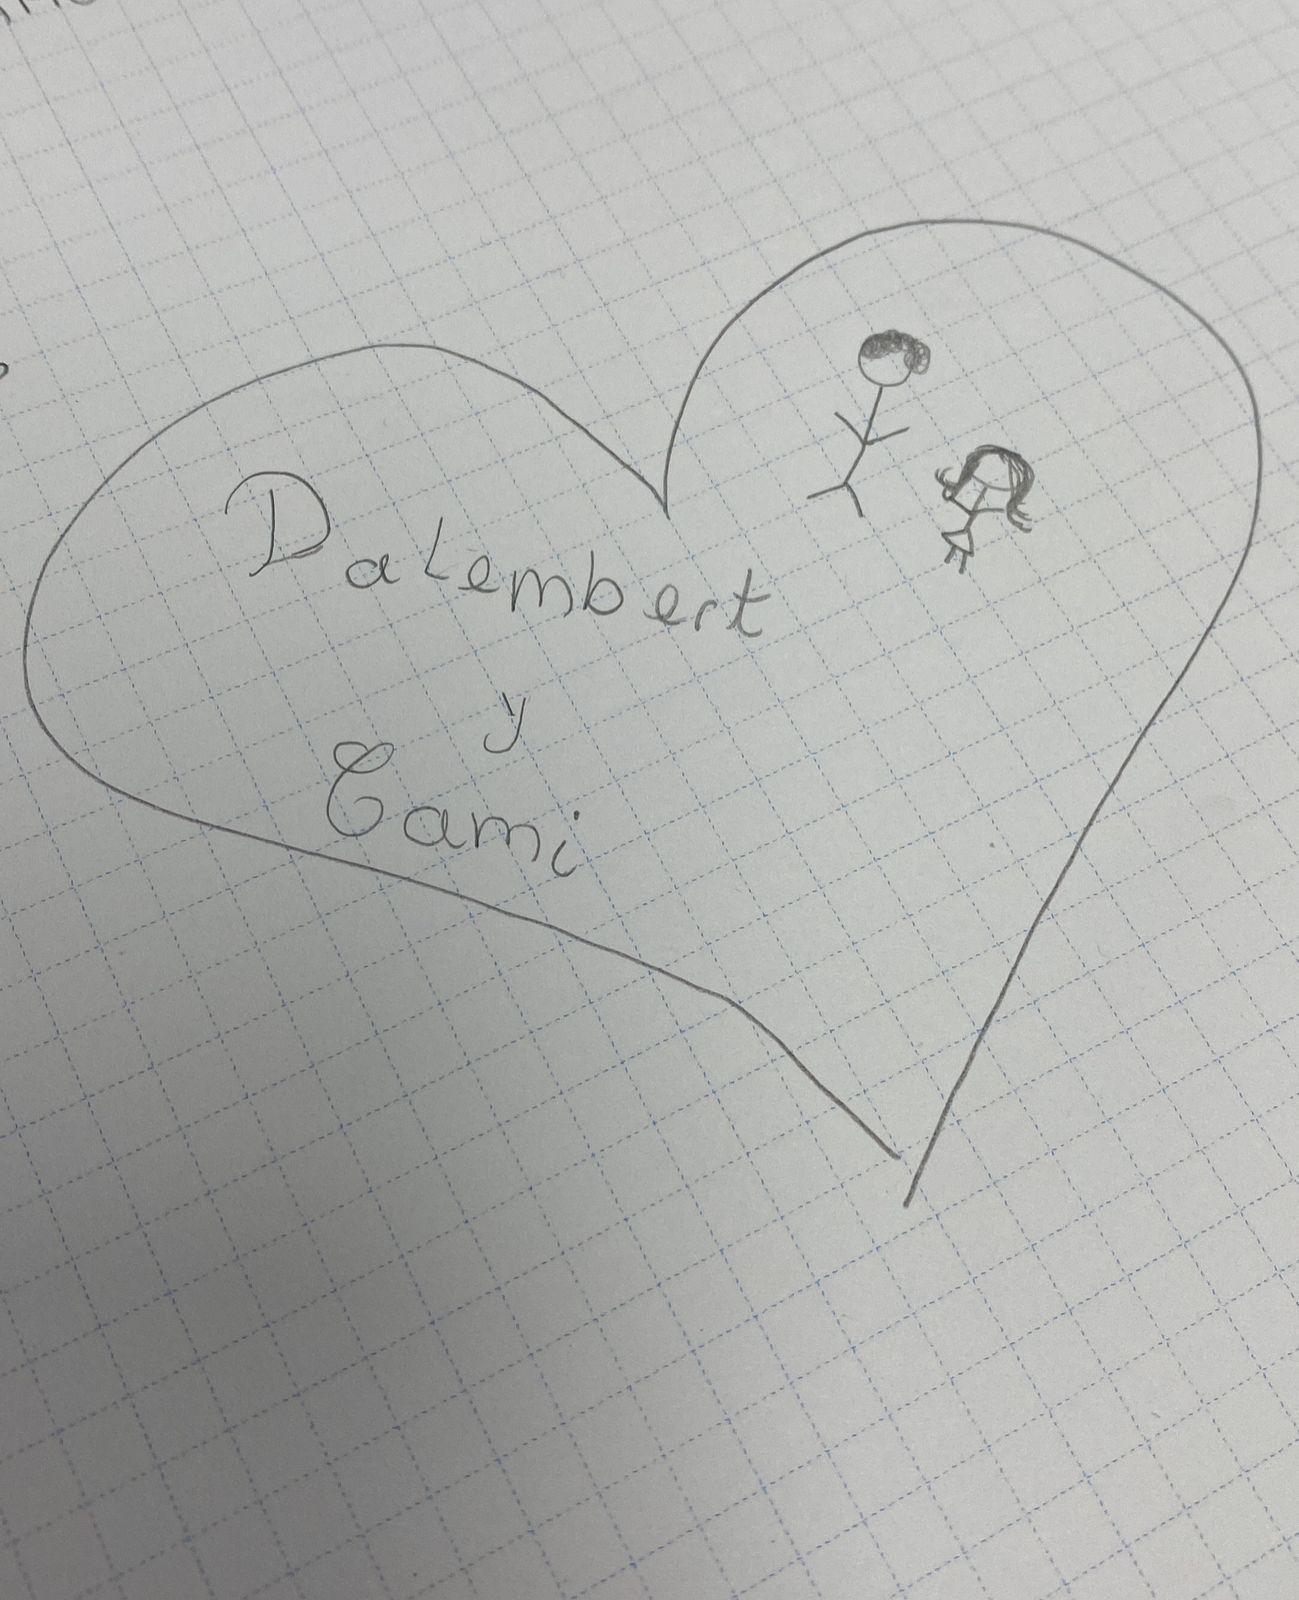 Dalembert
y
Cami